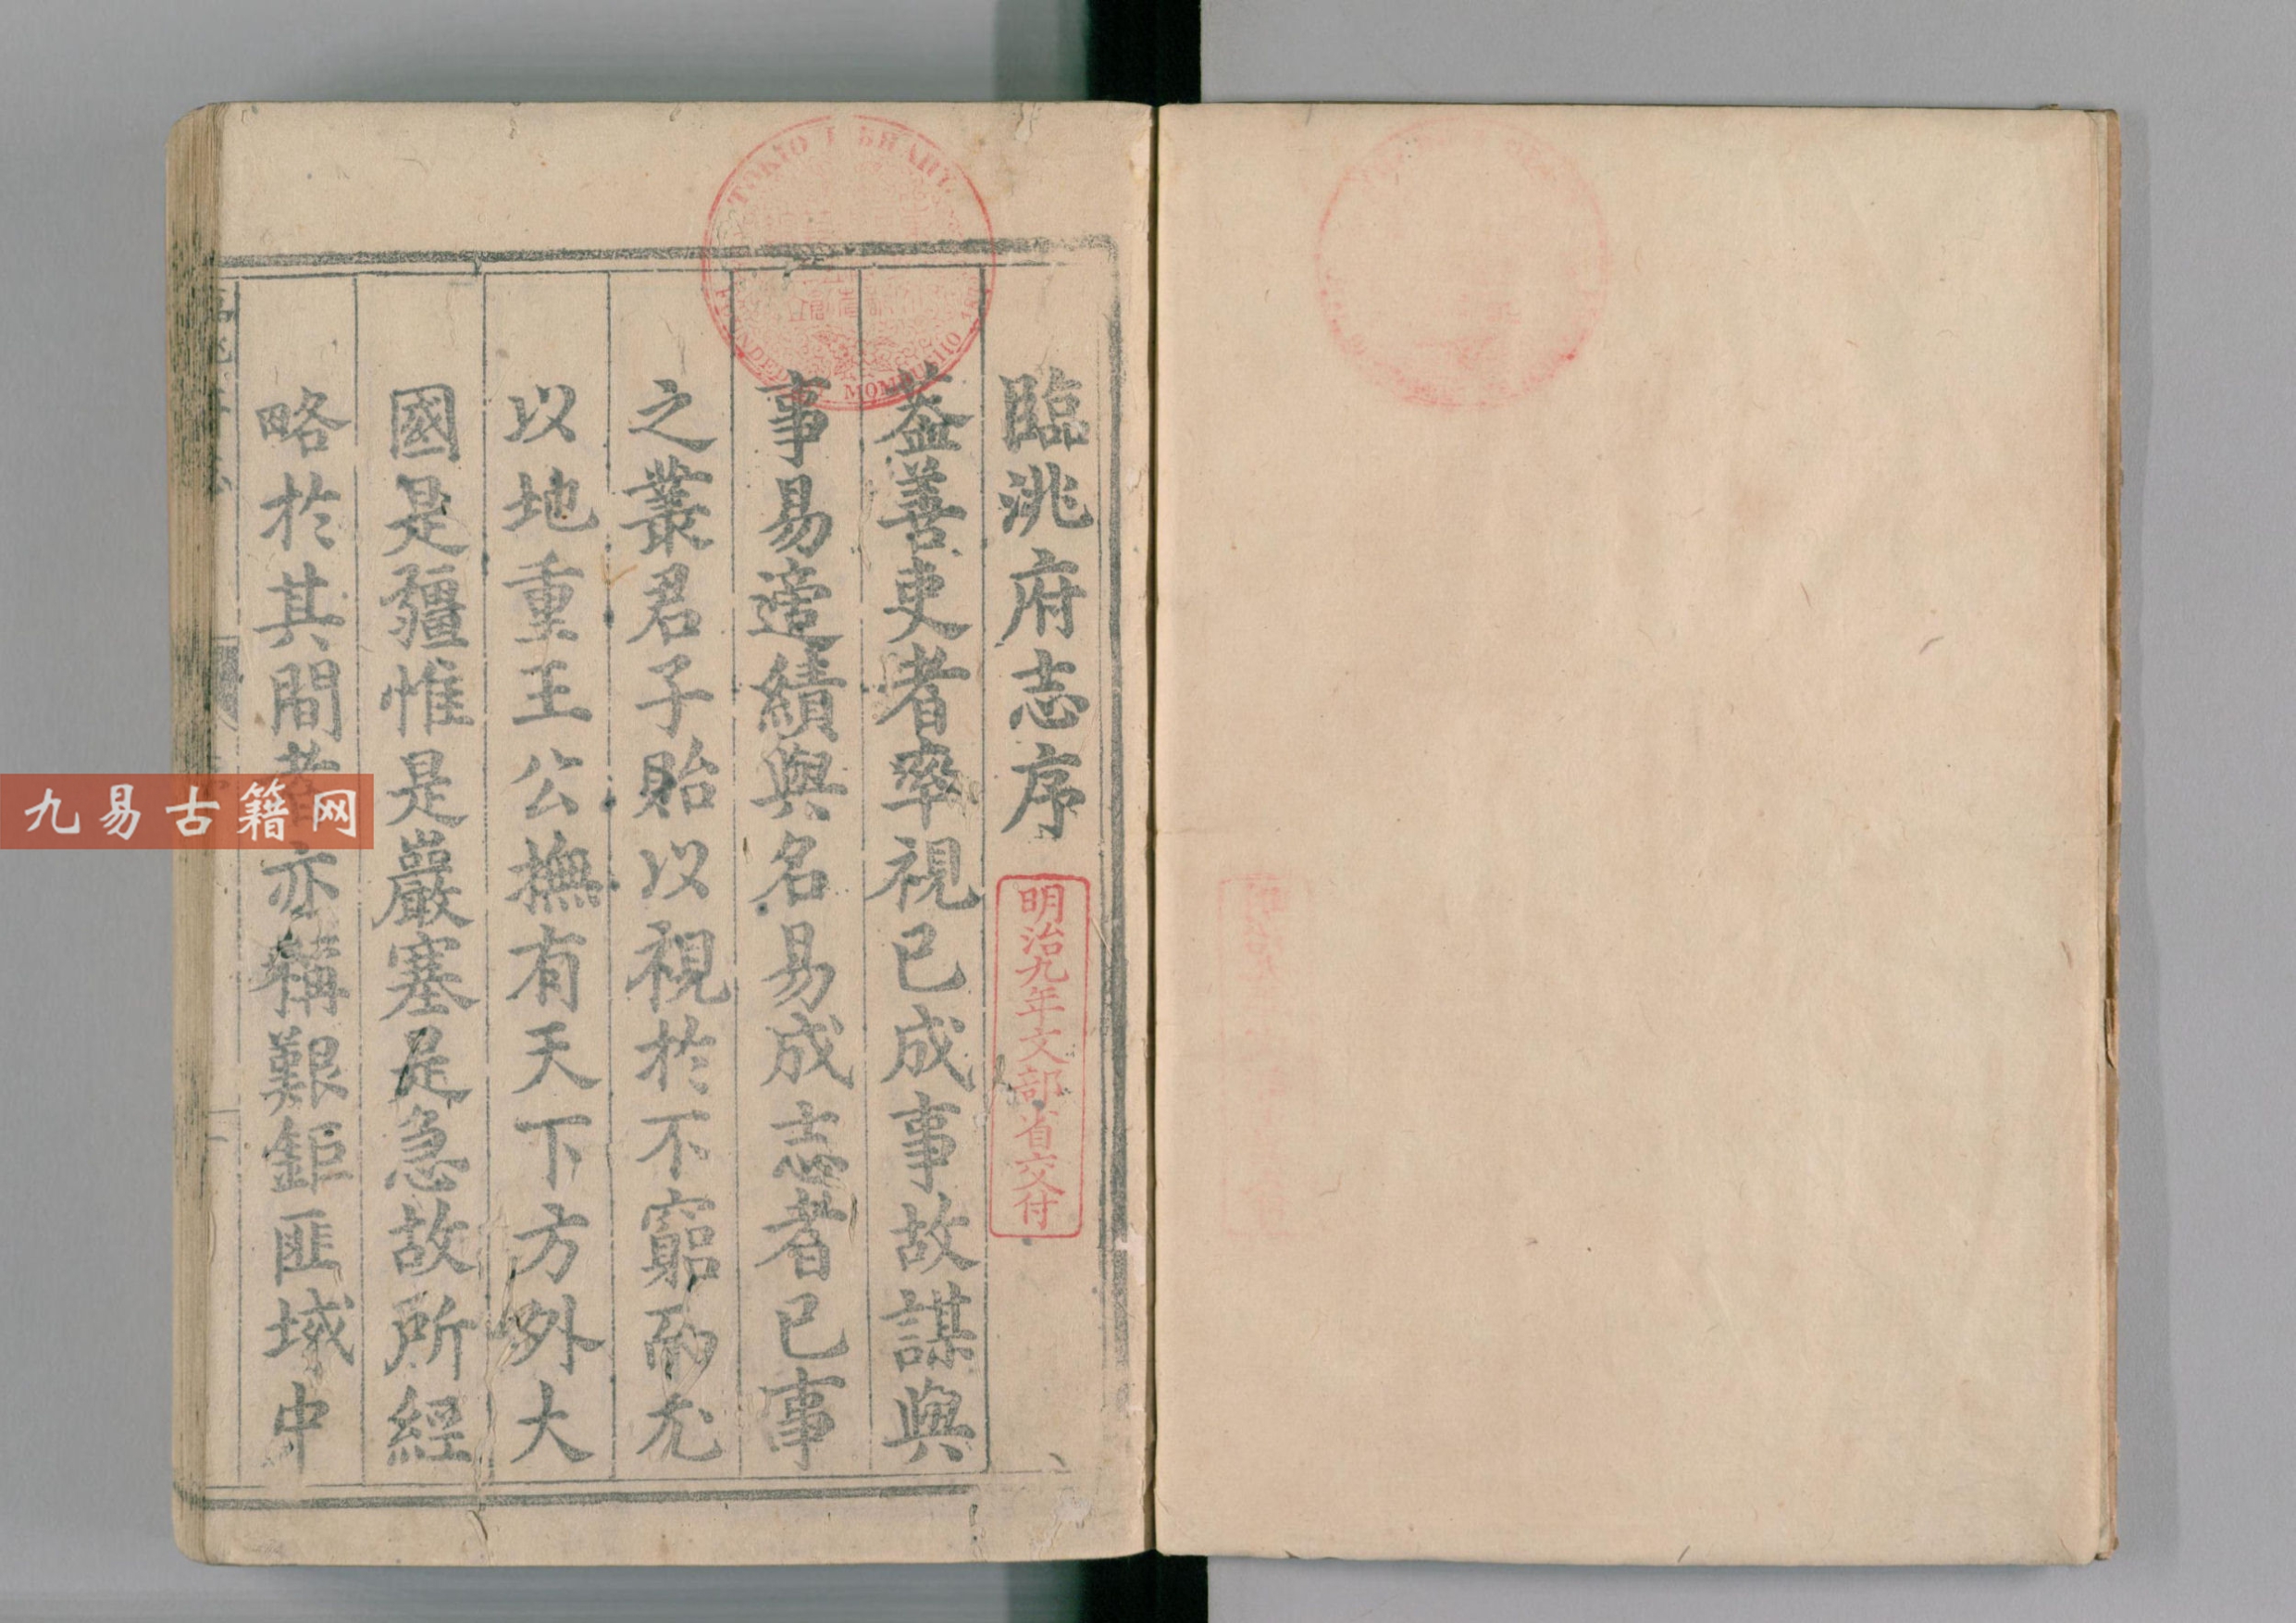 臨洮府志序
葢善吏者率視已成事故謀與
事易遒績與名易成志者已事
之叢君子貽以視於不窮而尤
以地重王公撫有天下方外大
國是疆惟是巖塞是急故所經
略於其間者亦稱艱鉅匪域中
明治九年文部省交付
TOKIO LIBRARY
MOMBUSHO
九易古籍网